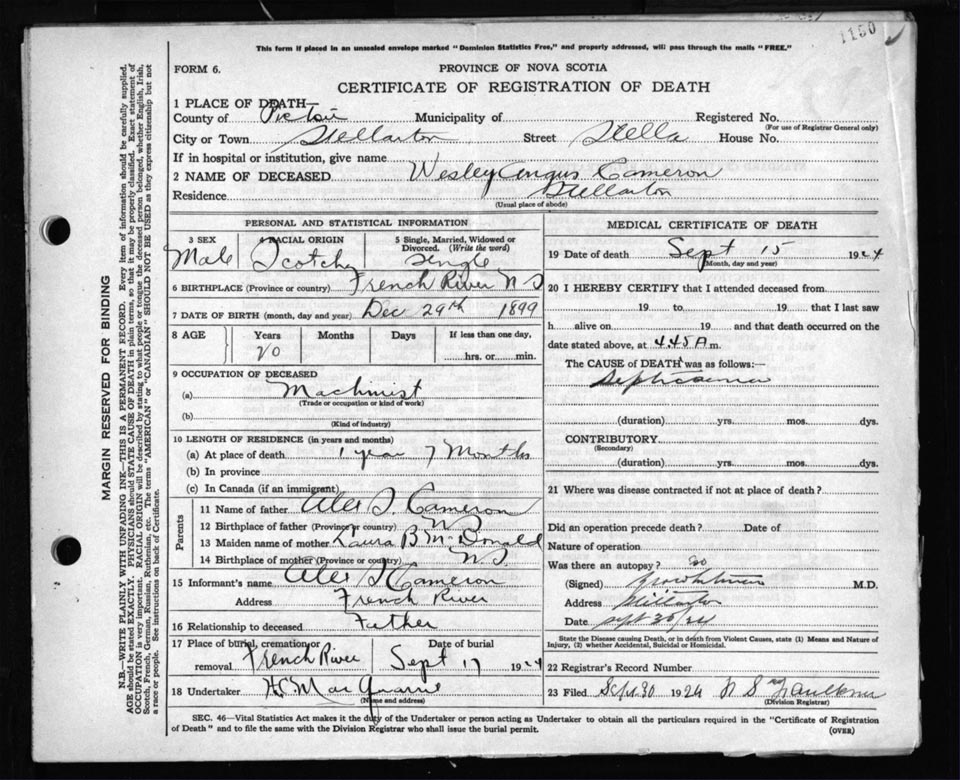 1180
This form if placed in an unsealed envelope marked "Dominion Statistics Free," and properly addressed, will pass through the mails "FREE."
FORM 6.
PROVINCE OF NOVA SCOTIA
CERTIFICATE OF REGISTRATION OF DEATH
1 PLACE OF DEATH—
County of Pictou Municipality of Registered No.
(For use of Registrar General only)
City or Town Stellarton Street Stella House No.
If in hospital or institution, give name
2 NAME OF DECEASED Wesley Angus Cameron
Residence Stellarton
(Usual place of abode)
PERSONAL AND STATISTICAL INFORMATION
3 SEX 4 RACIAL ORIGIN 5 Single, Married, Widowed or Divorced. (Write the word)
Male Scotch Single
6 BIRTHPLACE (Province or country) French River N S
7 DATE OF BIRTH (month, day and year) Dec 29th 1899
8 AGE Years Months Days If less than one day,
20 hrs. or min.
9 OCCUPATION OF DECEASED
(a) Machinist
(Trade or occupation or kind of work)
(b)
(Kind of industry)
10 LENGTH OF RESIDENCE (in years and months)
(a) At place of death 1 year 7 Months
(b) In province
(c) In Canada (if an immigrant)
Parents
11 Name of father Alex S. Cameron
12 Birthplace of father (Province or country) N S
13 Maiden name of mother Laura B McDonald
14 Birthplace of mother (Province or country) N. S.
15 Informant's name Alex S Cameron
Address French River
16 Relationship to deceased Father
17 Place of burial, cremation or removal French River Date of burial Sept 17 1924
18 Undertaker H MacQuarrie
(Name and address)
MEDICAL CERTIFICATE OF DEATH
19 Date of death Sept 15 1924
(Month, day and year)
20 I HEREBY CERTIFY that I attended deceased from
19 to 19 that I last saw
h alive on 19 and that death occurred on the
date stated above, at 4.45 A m.
The CAUSE of DEATH was as follows:—
Septicaemia
(duration) yrs. mos. dys.
CONTRIBUTORY
(Secondary)
(duration) yrs. mos. dys.
21 Where was disease contracted if not at place of death?
Did an operation precede death? Date of
Nature of operation
Was there an autopsy? no
(Signed) M.D.
Address Stellarton
Date Sept 30/24
State the Disease causing Death, or in death from Violent Causes, state (1) Means and Nature of Injury, (2) whether Accidental, Suicidal or Homicidal.
22 Registrar's Record Number
23 Filed Sept 30 1924 N S Faulkner
(Division Registrar)
SEC. 46—Vital Statistics Act makes it the duty of the Undertaker or person acting as Undertaker to obtain all the particulars required in the "Certificate of Registration
of Death" and to file the same with the Division Registrar who shall issue the burial permit.
(OVER)
MARGIN RESERVED FOR BINDING
N.B.—WRITE PLAINLY WITH UNFADING INK—THIS IS A PERMANENT RECORD. Every item of information should be carefully supplied.
AGE should be stated EXACTLY. PHYSICIANS should STATE CAUSE OF DEATH in plain terms, so that it may be properly classified. Exact statement of
OCCUPATION is very important. RACIAL ORIGIN will be described by stating to what people or tongue the deceased person belonged, whether English, Irish,
Scotch, French, German, Russian, Ruthenian, etc. The terms "AMERICAN" or "CANADIAN" SHOULD NOT BE USED as they express citizenship but not
a race or people. See instructions on back of Certificate.